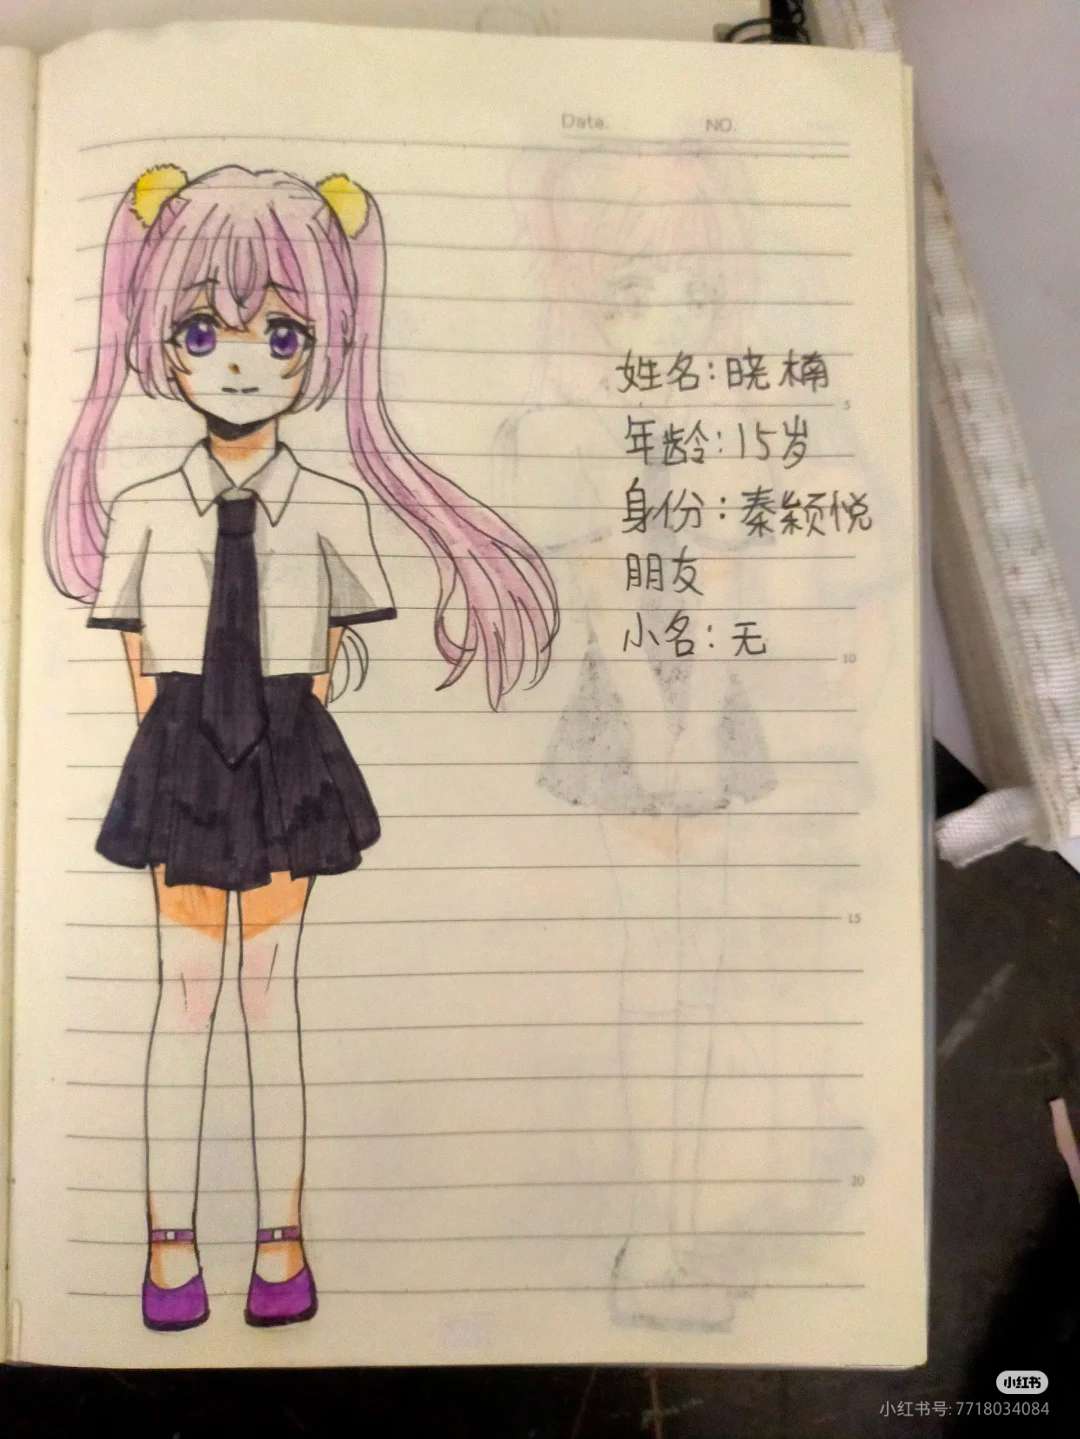 Date.
NO.
姓名：晓楠
5
年龄：15岁
身份：秦颖悦
朋友
小名：无
10
15
20
小红书
小红书号: 7718034084